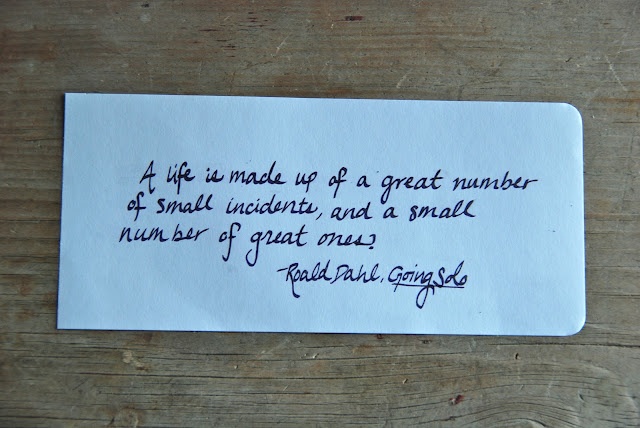 A life is made up of a great number
of small incidents, and a small
number of great ones?
-Roald Dahl, Going Solo